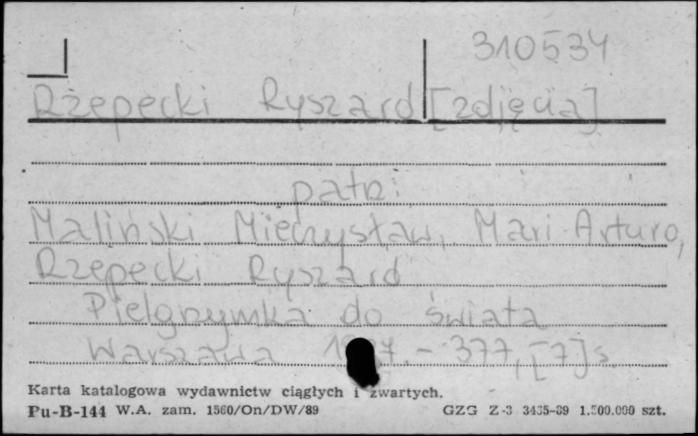 310534
Rzepecki Ryszard [zdjęcia]
patrz:
Maliński Mieczysław, Mari Arturo,
Rzepecki Ryszard
Pielgrzymka do świata
Warszawa - 377, [7] s.
Karta katalogowa wydawnictw ciągłych i zwartych.
Pu-B-144 W.A. zam. 1560/On/DW/89 GZG Z-3 3435-89 1.500.000 szt.